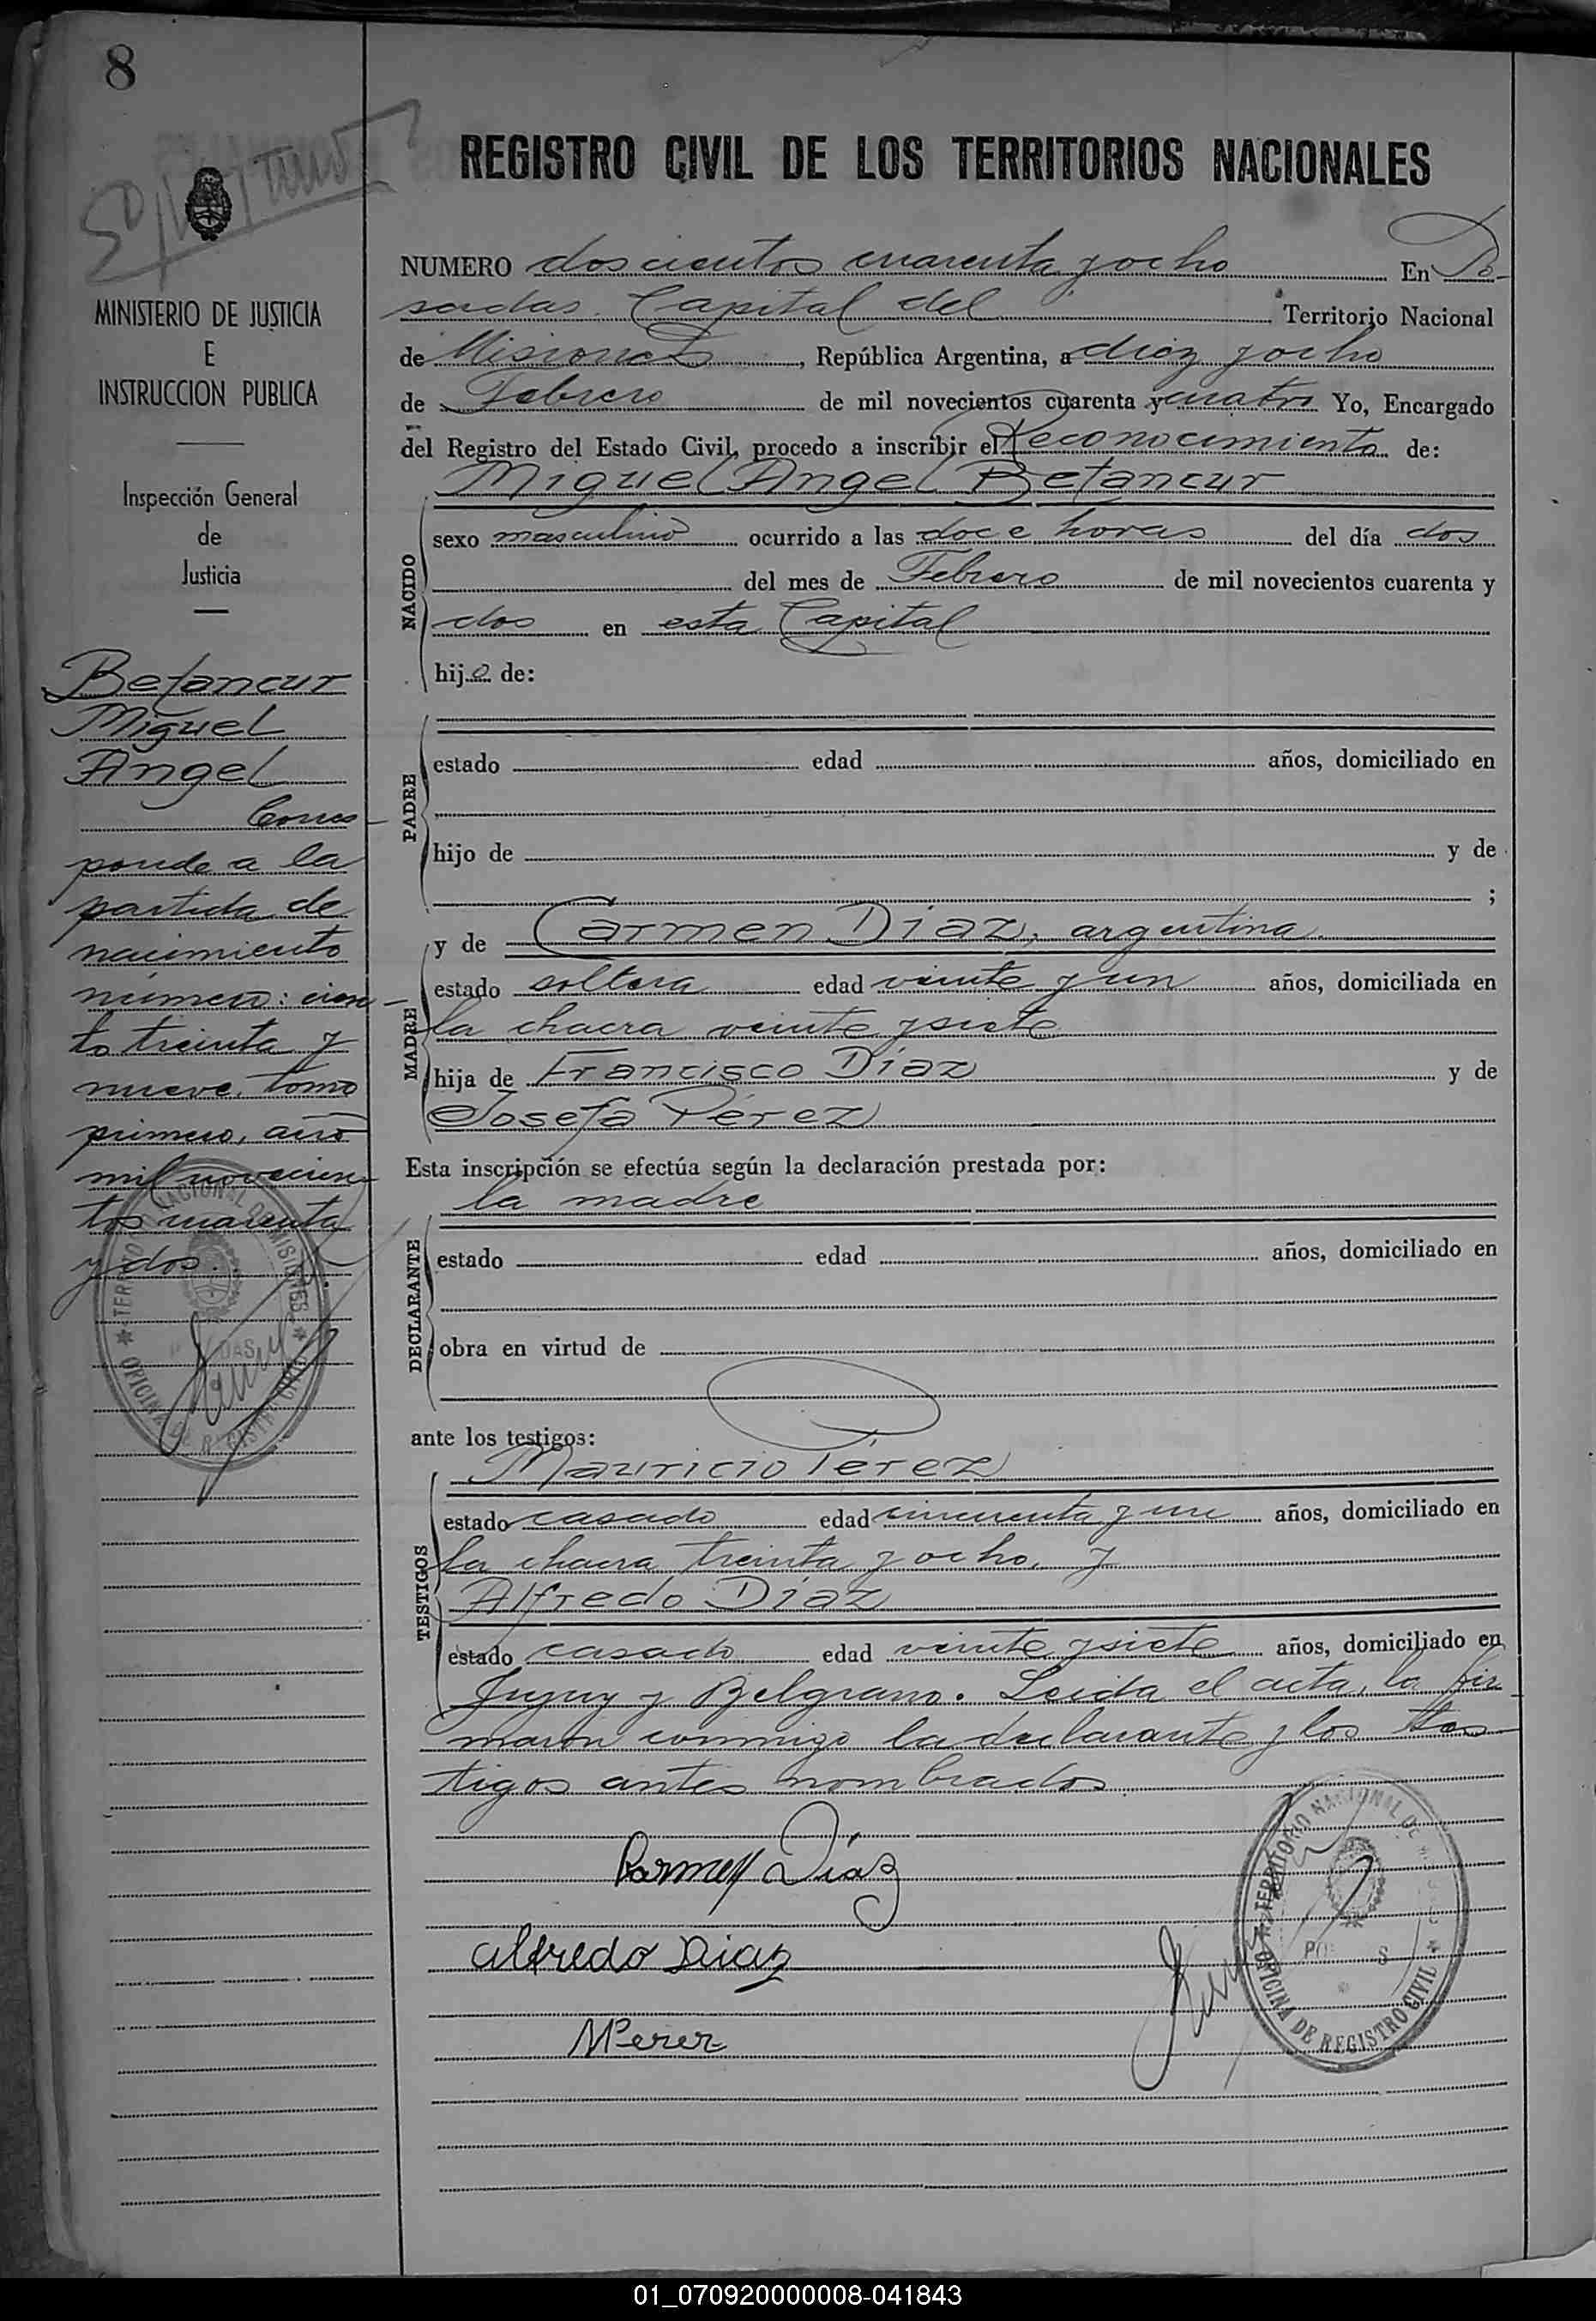 8
REGISTRO CIVIL DE LOS TERRITORIOS NACIONALES
MINISTERIO DE JUSTICIA
E
INSTRUCCION PUBLICA
Inspección General
de
Justicia
Betancur
Miguel
Angel
Corres
ponde a la
partida de
nacimiento
número: cien-
to treinta y
nueve, tomo
primero, año
mil novecien-
tos cuarenta
y dos.
NUMERO doscientos cuarenta y ocho En Po-
sadas Capital del Territorio Nacional
de Misiones, República Argentina, a diez y ocho
de Febrero de mil novecientos cuarenta y cuatro Yo, Encargado
del Registro del Estado Civil, procedo a inscribir el Reconocimiento de:
Miguel Angel Betancur
NACIDO
sexo masculino ocurrido a las doce horas del día dos
del mes de Febrero de mil novecientos cuarenta y
dos en esta Capital
hijo de:
PADRE
estado edad años, domiciliado en
hijo de y de
;
y de Carmen Díaz, argentina
MADRE
estado soltera edad veinte y un años, domiciliada en
la chacra veinte y siete
hija de Francisco Díaz y de
Josefa Pérez
Esta inscripción se efectúa según la declaración prestada por:
la madre
DECLARANTE
estado edad años, domiciliado en
obra en virtud de
ante los testigos:
Mauricio Pérez
TESTIGOS
estado casado edad cincuenta y un años, domiciliado en
la chacra treinta y ocho, y
Alfredo Díaz
estado casado edad veinte y siete años, domiciliado en
Jujuy y Belgrano. Leída el acta, la fir-
maron conmigo la declarante y los tes-
tigos antes nombrados
Carmen Díaz
alfredo Diaz
MPerez
TERRITORIO NACIONAL DE MISIONES
OFICINA DE REGISTRO CIVIL
TERRITORIO NACIONAL DE
OFICINA DE REGISTRO CIVIL
01_070920000008-041843